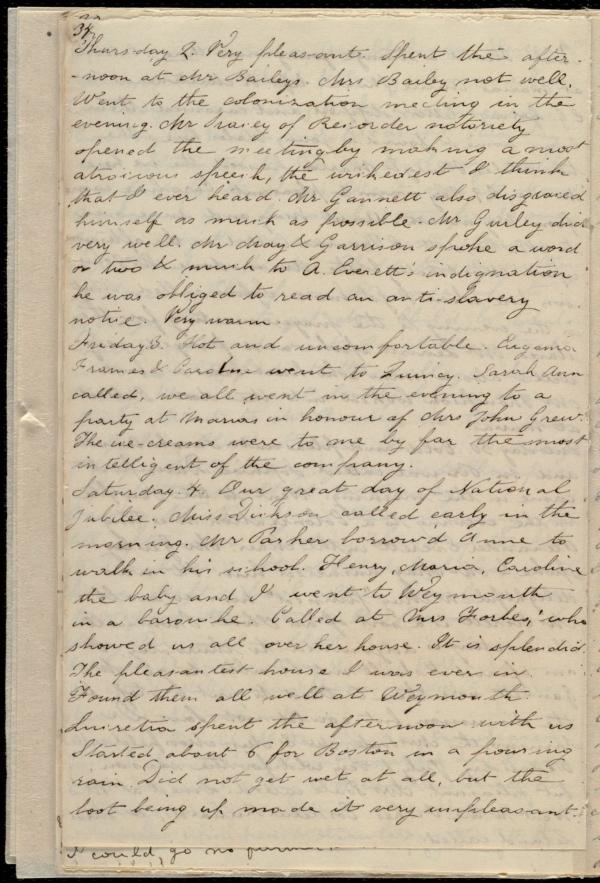 34
Thursday 2. Very pleasant. Spent the after-
-noon at Mr Baileys. Mrs Bailey not well.
Went to the colonization meeting in the
evening. Mr of Recorder notoriety
opened the meeting by making a most
atrocious speech, the wickedest I think
that I ever heard. Mr Gannett also disgraced
himself as much as possible. Mr Gurley did
very well. Mr May & Garrison spoke a word
or two & much to A. Everett's indignation
he was obliged to read an anti-slavery
notice. Very warm.
Friday 3. Hot and uncomfortable. Eugenia
Frances & Caroline went to Quincy. Sarah Ann
called, we all went in the evening to a
party at Marias in honour of Mrs John Grew.
The ice-creams were to me by far the most
intelligent of the company.
Saturday. 4. Our great day of National
Jubilee. Miss Dickson called early in the
morning. Mr Parker borrow'd Anne to
walk in his school. Henry, Maria, Caroline
the baby and I went to Weymouth
in a barouche. Called at Mrs Forbes' who
showed us all over her house. It is splendid.
The pleasantest house I was ever in.
Found them all well at Weymouth.
Lucretia spent the afternoon with us
Started about 6 for Boston in a pouring
rain. Did not get wet at all, but the
boot being up made it very unpleasant.
I could go no